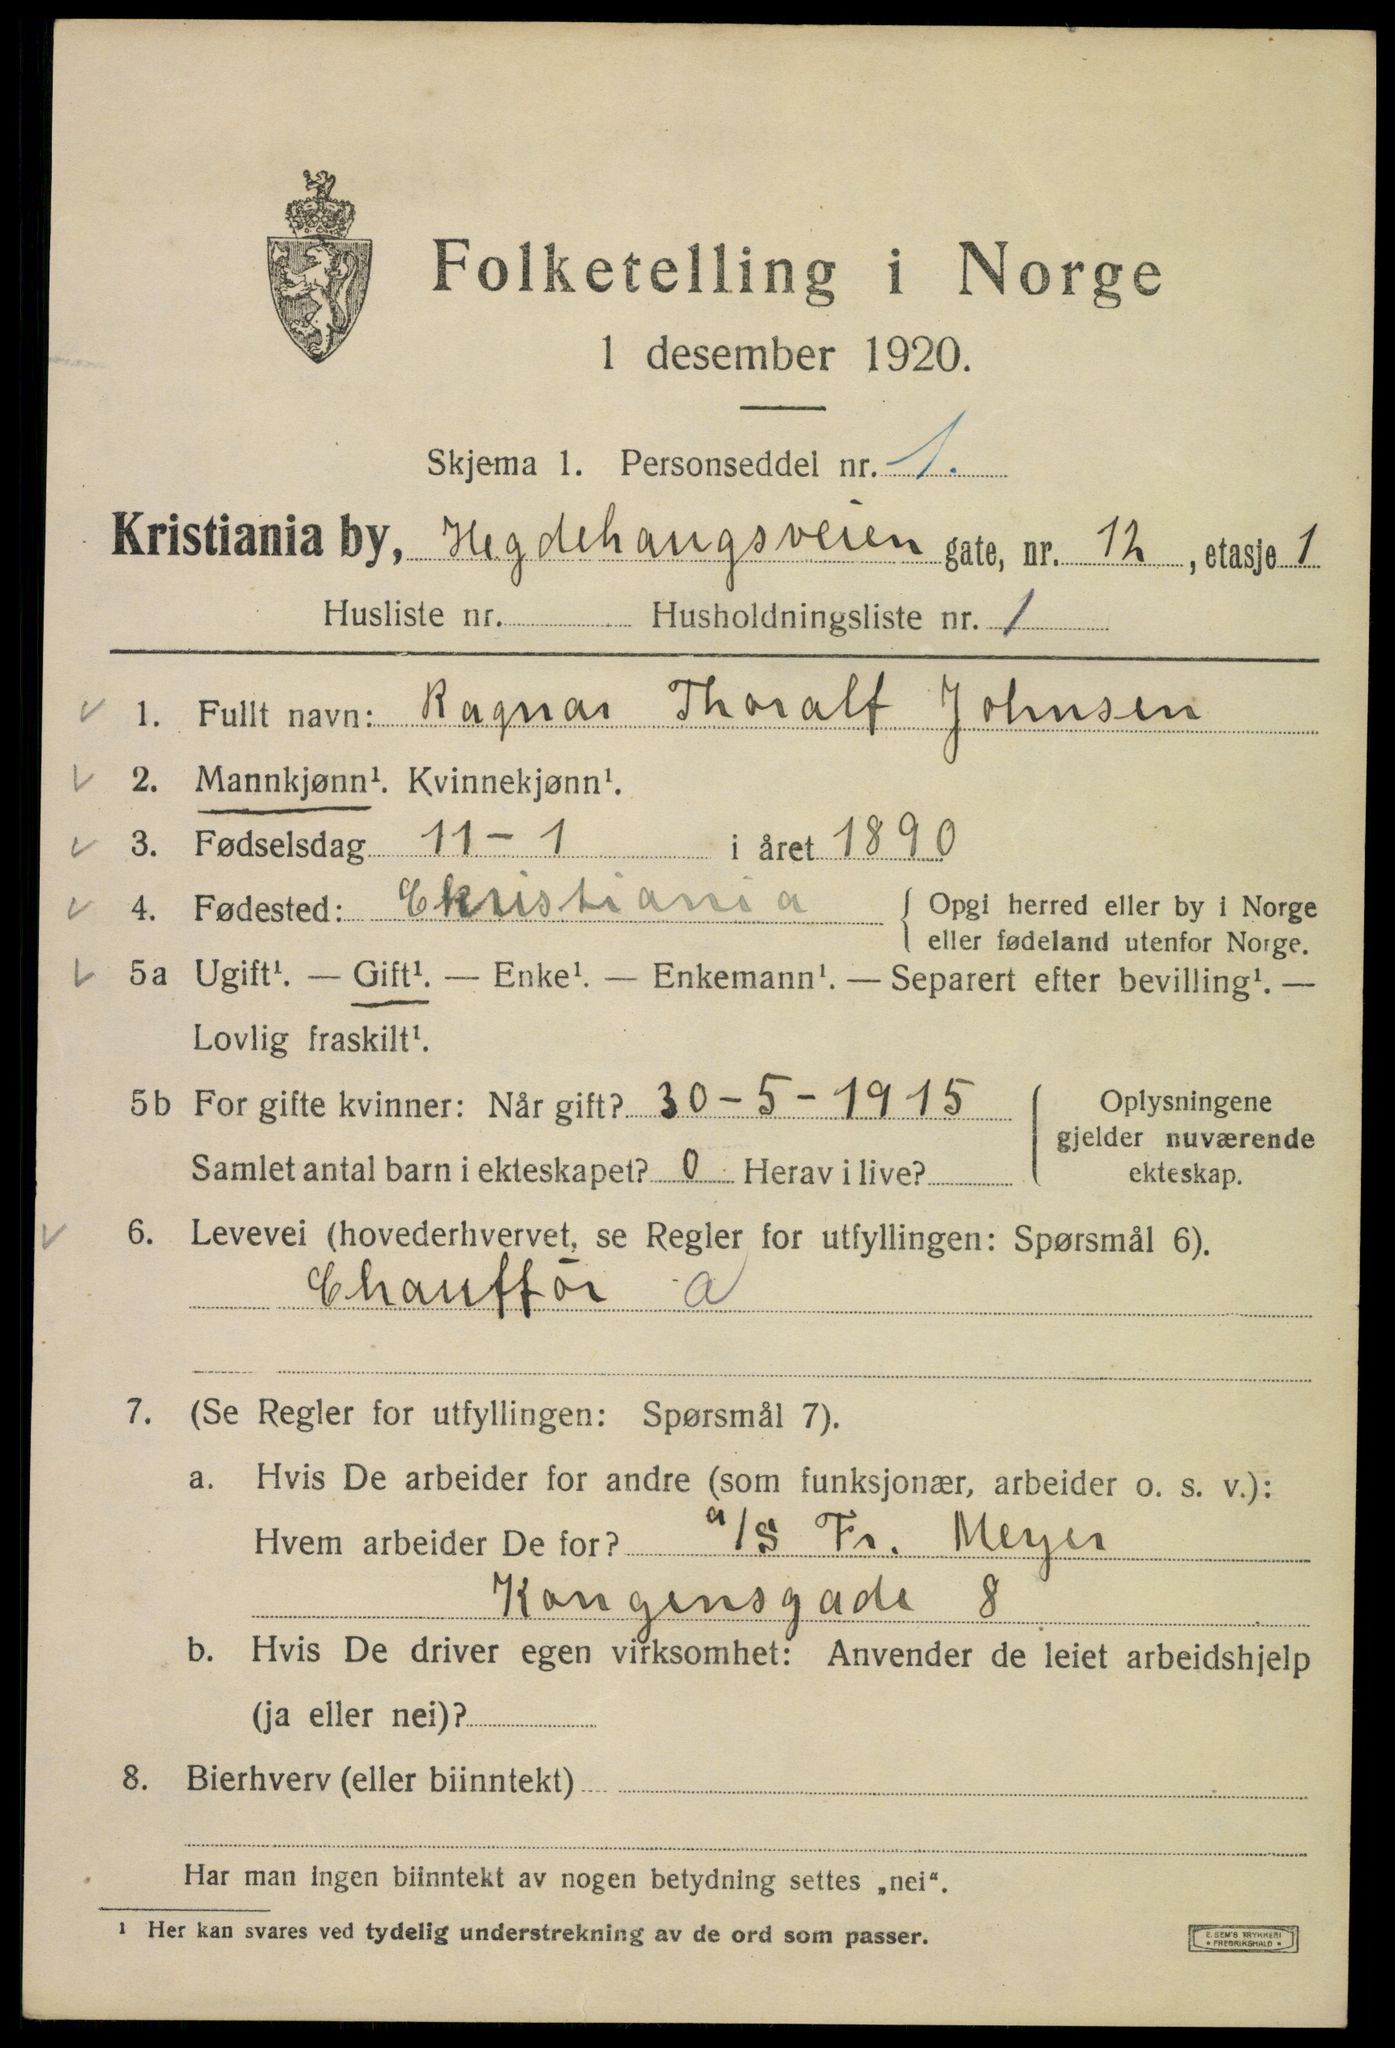 Folketelling i Norge
1 desember 1920.
Skjema 1. Personseddel nr. 1.
Kristiania by, Hegdehaugsveien gate, nr. 12, etasje 1
Husliste nr. Husholdningsliste nr. 1
1. Fullt navn: Ragnar Thoralf Johnsen
2. Mannkjønn¹. Kvinnekjønn¹.
3. Fødselsdag 11-1 i året 1890
4. Fødested: Chkristiania { Opgi herred eller by i Norge
eller fødeland utenfor Norge.
5a Ugift¹. — Gift¹. — Enke¹. — Enkemann¹. — Separert efter bevilling¹. —
Lovlig fraskilt¹.
5b For gifte kvinner: Når gift? 30-5-1915
Samlet antal barn i ekteskapet? 0 Herav i live?
Oplysningene
gjelder nuværende
ekteskap.
6. Levevei (hovederhvervet, se Regler for utfyllingen: Spørsmål 6).
Chaufför a
7. (Se Regler for utfyllingen: Spørsmål 7).
a. Hvis De arbeider for andre (som funksjonær, arbeider o. s. v.):
Hvem arbeider De for? a/s Fr. Meyer
Kongensgade 8
b. Hvis De driver egen virksomhet: Anvender de leiet arbeidshjelp
(ja eller nei)?
8. Bierhverv (eller biinntekt)
Har man ingen biinntekt av nogen betydning settes „nei“.
¹ Her kan svares ved tydelig understrekning av de ord som passer.
E. SEM'S TRYKKERI
• FREDRIKSHALD •